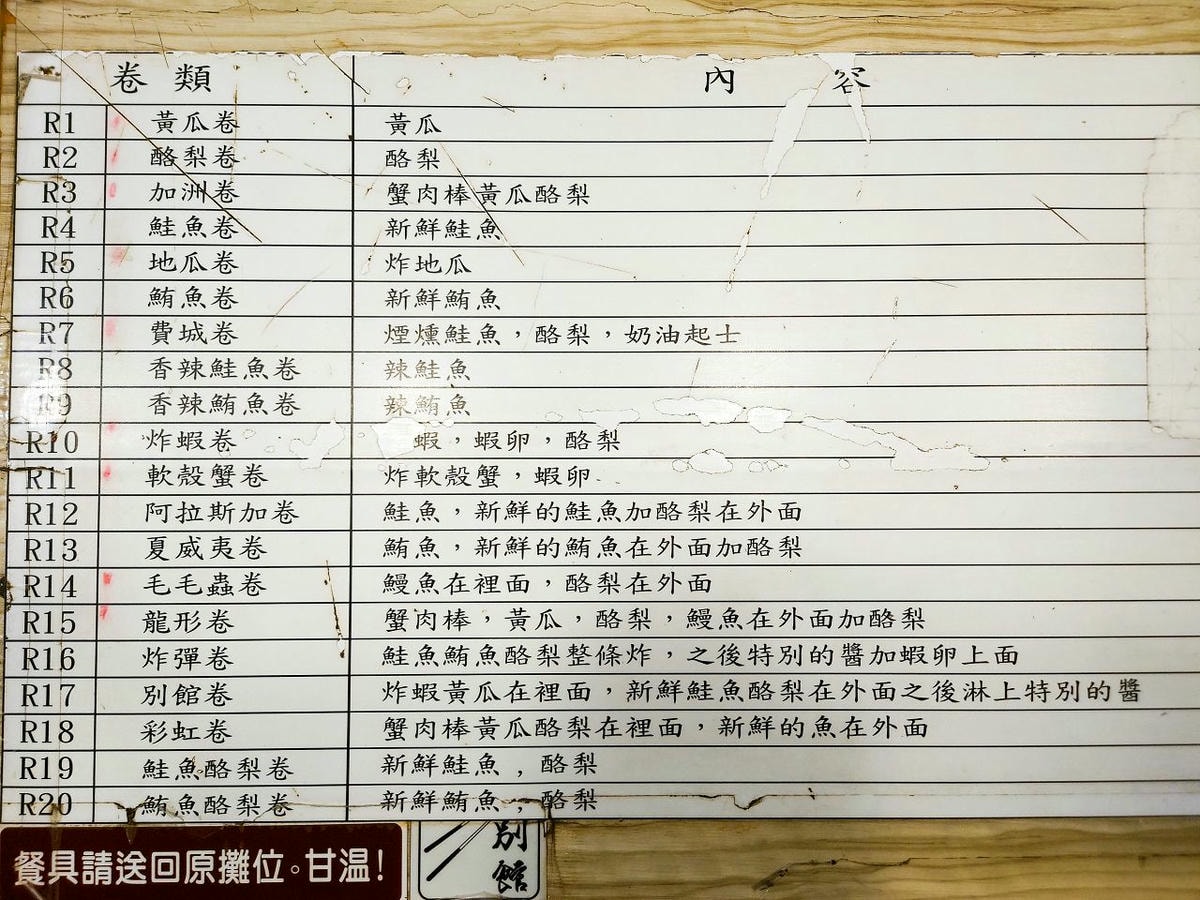 卷類 內容
R1 黃瓜卷 黃瓜
R2 酪梨卷 酪梨
R3 加洲卷 蟹肉棒黃瓜酪梨
R4 鮭魚卷 新鮮鮭魚
R5 地瓜卷 炸地瓜
R6 鮪魚卷 新鮮鮪魚
R7 費城卷 煙燻鮭魚，酪梨，奶油起士
R8 香辣鮭魚卷 辣鮭魚
R9 香辣鮪魚卷 辣鮪魚
R10 炸蝦卷 蝦，蝦卵，酪梨
R11 軟殼蟹卷 炸軟殼蟹，蝦卵
R12 阿拉斯加卷 鮭魚，新鮮的鮭魚加酪梨在外面
R13 夏威夷卷 鮪魚，新鮮的鮪魚在外面加酪梨
R14 毛毛蟲卷 鰻魚在裡面，酪梨在外面
R15 龍形卷 蟹肉棒，黃瓜，酪梨，鰻魚在外面加酪梨
R16 炸彈卷 鮭魚鮪魚酪梨整條炸，之後特別的醬加蝦卵上面
R17 別館卷 炸蝦黃瓜在裡面，新鮮鮭魚酪梨在外面之後淋上特別的醬
R18 彩虹卷 蟹肉棒黃瓜酪梨在裡面，新鮮的魚在外面
R19 鮭魚酪梨卷 新鮮鮭魚，酪梨
R20 鮪魚酪梨卷 新鮮鮪魚，酪梨
餐具請送回原攤位。甘溫！
別館